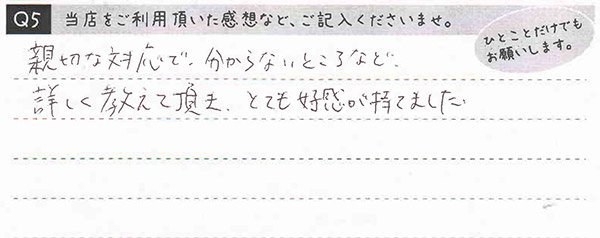 Q5 当店をご利用頂いた感想など、ご記入くださいませ。
ひとことだけでも
お願いします。
親切な対応で、分からないところなど、
詳しく教えて頂き、とても好感が持てました。